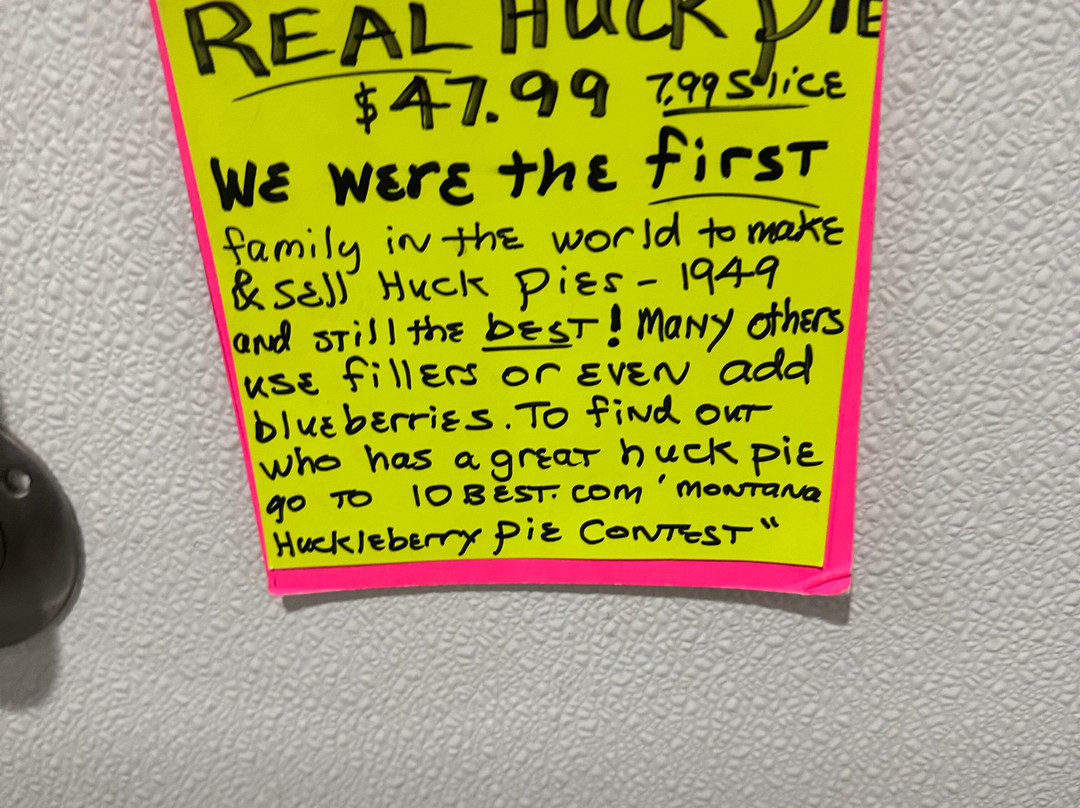 REAL HUCK PIE
$47.99 7.99 Slice
WE WERE the first
family in the world to make
& sell Huck Pies - 1949
and still the best! Many others
use fillers or even add
blueberries. To find out
who has a great huck pie
go to 10BEST.com 'Montana
Huckleberry Pie Contest"